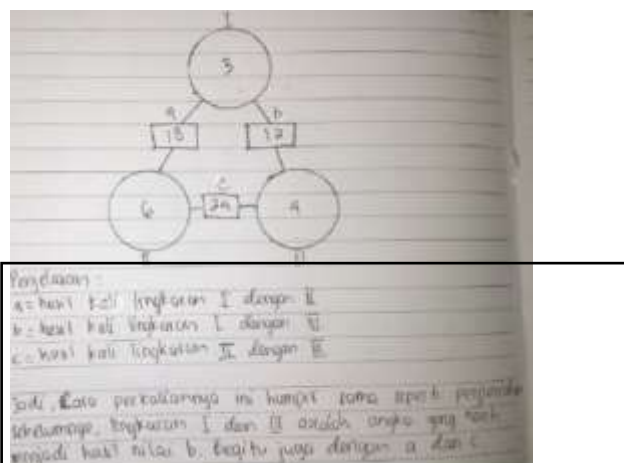 I
3
a b
18 12
c
6 24 4
II III
Penjelasan :
a = hasil kali lingkaran I dengan II
b = hasil kali lingkaran I dengan III
c = hasil kali lingkaran II dengan III
Jadi, Cara perkaliannya ini hampir sama seperti penjumlahan
sebelumnya, lingkaran I dan III adalah angka yang
menjadi hasil nilai b, begitu juga dengan a dan c